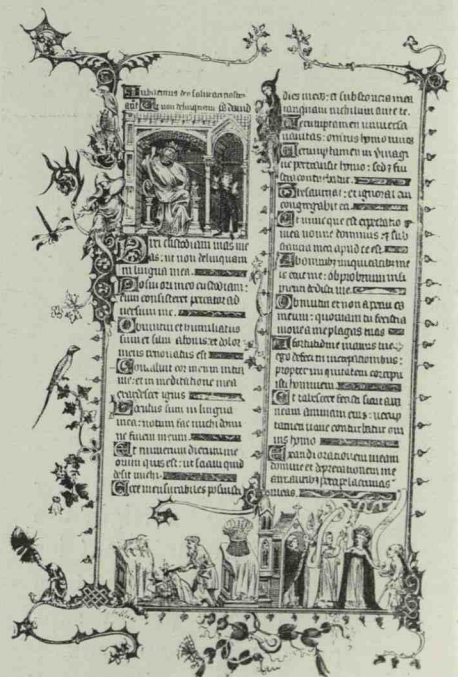 non delinquam
Dixi custodiam uias me
as: ut non delinquam
in lingua mea.
Posui ori meo custodiam:
cum consisteret peccator ad
uersum me.
Obmutui et humiliatus
sum et silui a bonis: et dolor
meus renouatus est
Concaluit cor meum intra
me: et in meditatione mea
exardescet ignis
Locutus sum in lingua
mea: notum fac michi domi
ne finem meum.
Et numerum dierum me
orum quis est: ut sciam quid
desit michi.
Ecce mensurabiles posuisti
dies meos: et substancia mea
tanquam nichilum ante te.
uerumptamen uniuersa
uanitas: omnis homo uiuens
Uerumptamen in ymagi
ne pertransit homo: sed et frus
tra conturbatur.
Thesaurizat: et ignorat cui
congregabit ea.
Et nunc que est expectatio
mea nonne dominus: et sub
stancia mea apud te est.
Ab omnibus iniquitatibus me
is erue me: obprobrium insi
pienti dedisti me.
Obmutui et non aperui os
meum: quoniam tu fecisti a
moue a me plagas tuas
A fortitudine manus tue
ego defeci in increpationibus:
propter iniquitatem corripu
isti hominem.
Et tabescere fecisti sicut ara
neam animam eius: uerump
tamen uane conturbatur om
nis homo
Exaudi orationem meam
domine et deprecationem me
am: auribus percipe lacrimas
meas.